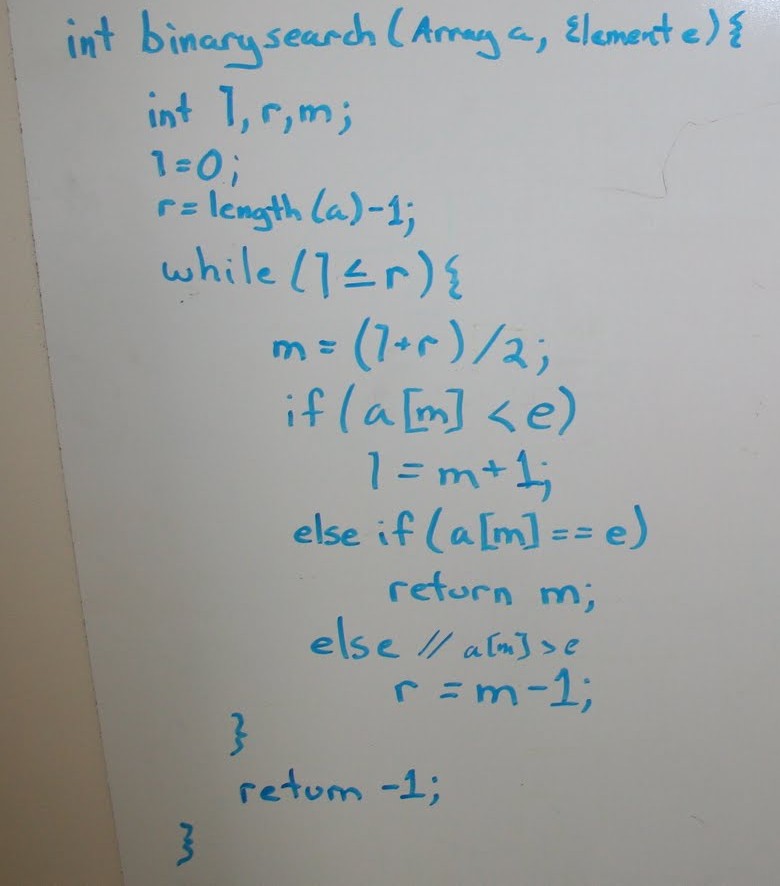 int binarysearch(Array a, Element e){
int l,r,m;
l=0;
r=length(a)-1;
while(l≤r){
m=(l+r)/2;
if(a[m] <e)
l=m+1;
else if(a[m]==e)
return m;
else // a[m]>e
r=m-1;
}
return -1;
}